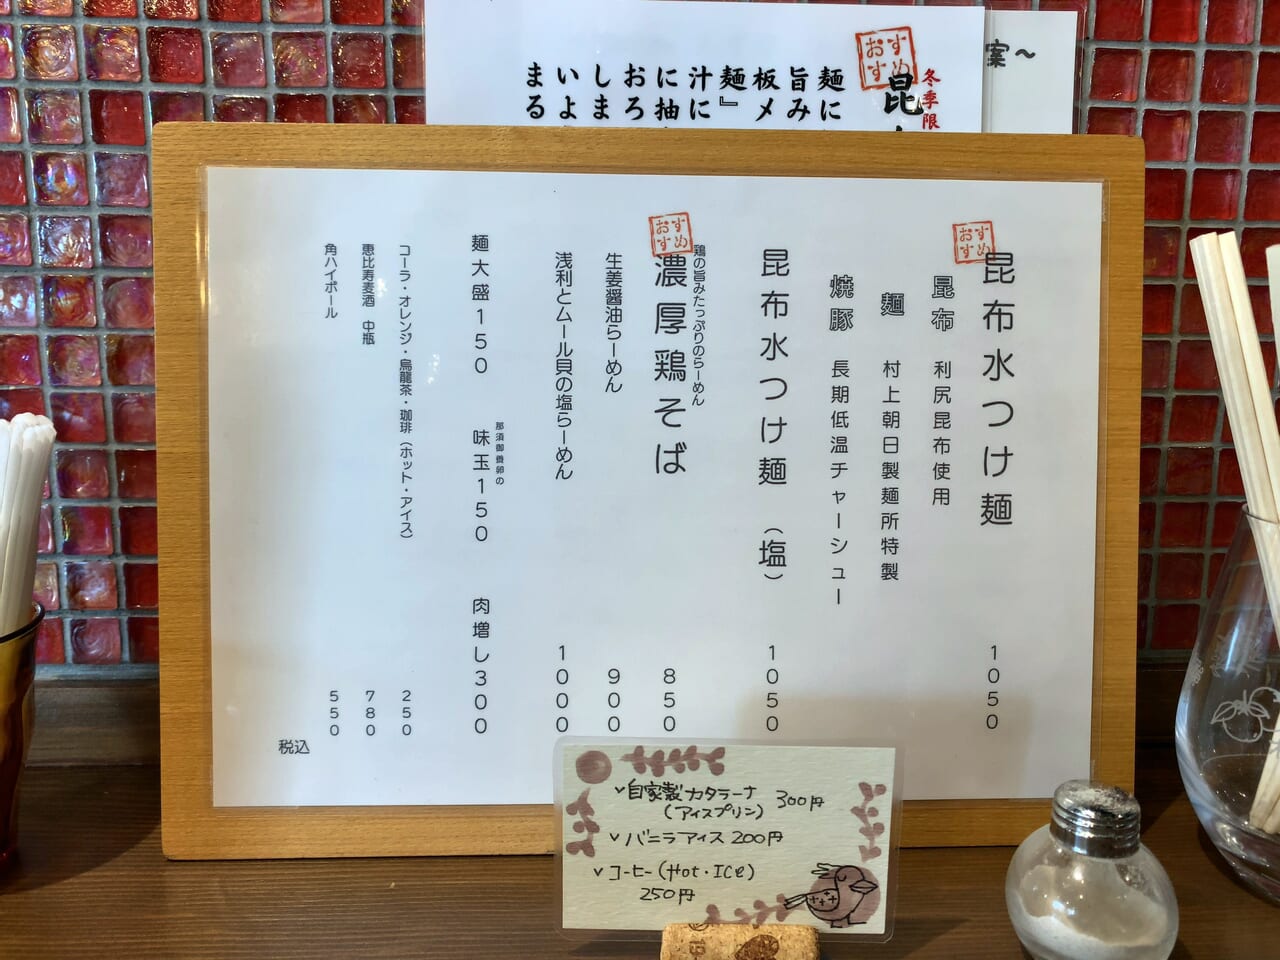 案～
冬季限
おすすめ
昆
麺に
旨み
板メ
麺』
汁に
に抽
おろ
しま
いよ
まる
おすすめ
昆布水つけ麺 1050
昆布 利尻昆布使用
麺 村上朝日製麺所特製
焼豚 長期低温チャーシュー
昆布水つけ麺 （塩） 1050
おすすめ
鶏の旨みたっぷりのらーめん
濃厚鶏そば 850
生姜醤油らーめん 900
浅利とムール貝の塩らーめん 1000
那須御養卵の
麺大盛150 味玉150 肉増し300
コーラ・オレンジ・烏龍茶・珈琲（ホット・アイス） 250
恵比寿麦酒 中瓶 780
角ハイボール 550
税込
自家製カタラーナ 300円
（アイスプリン）
バニラアイス 200円
コーヒー（Hot・ICe）
250円